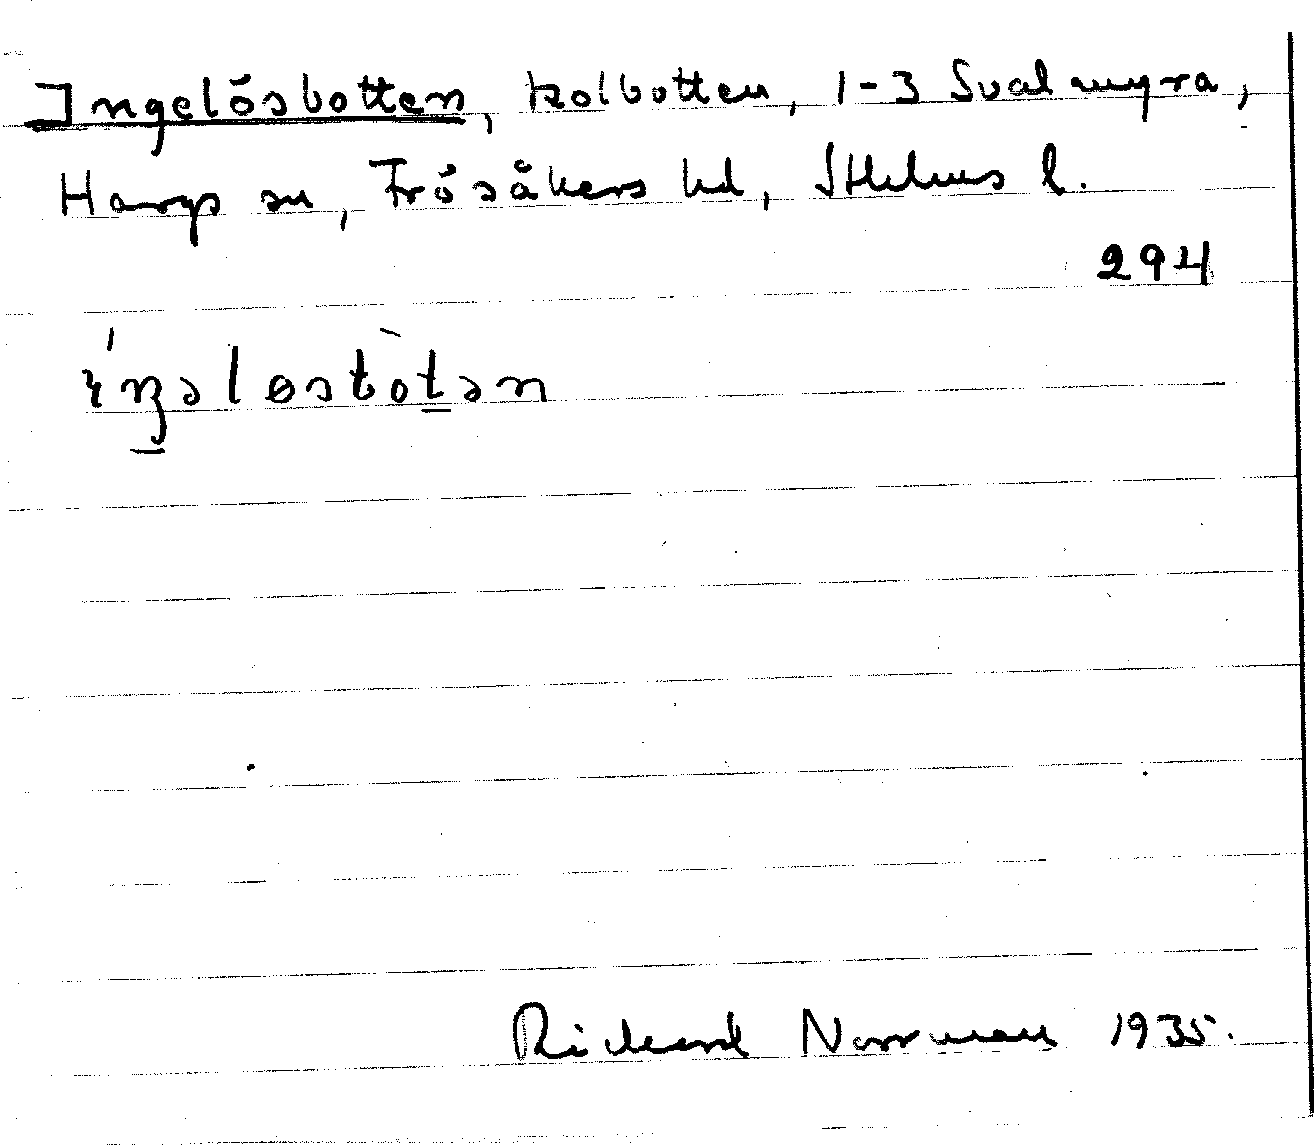 Ingelösbotten, kolbotten, 1-3 Svalmyra,
Hargs sn, Frösåkers hd, Sthlms l.
294
íŋələsbòtən
Rickard Norrman 1935.